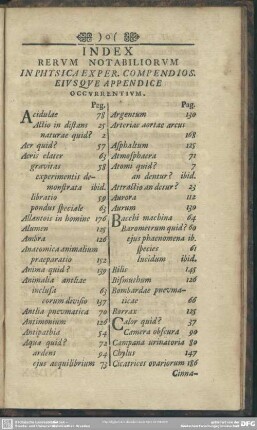 )o(
INDEX
RERVM NOTABILIORVM
IN PHYSICA EXPER. COMPENDIOS.
EIVSQVE APPENDICE
OCCVRRENTIVM.
Pag.
Acidulae 78
Actio in distans 25
naturae quid? 2
Aer quid? 57
Aeris elater 63
gravitas 58
experimentis de-
monstrata ibid.
libratio 59
pondus speciale 63
Allantois in homine 176
Alumen 125
Ambra 126
Anatomica animalium
praeparatio 152
Anima quid? 159
Animalia antliae
inclusa 65
eorum divisio 157
Antlia pnevmatica 70
Antimonium 126
Antipathia 54
Aqua quid? 72
ardens 94
ejus acquilibrium 73
Pag.
Argentum 130
Arteriae aortae arcus
168
Asphaltum 125
Atmosphaera 71
Atomi quid? 7
an dentur? ibid.
Attractio an detur? 23
Aurora 112
Aurum 130
Bacchi machina 64
Barometrum quid? 60
ejus phaenomena ib.
species 61
lucidum ibid.
Bilis 145
Bismuthum 126
Bombardae pnevma-
ticae 66
Borrax 125
Calor quid? 37
Camera obscura 90
Campana urinatoria 80
Chylus 147
Cicatrices ovariorum 186
Cinna-
DFG